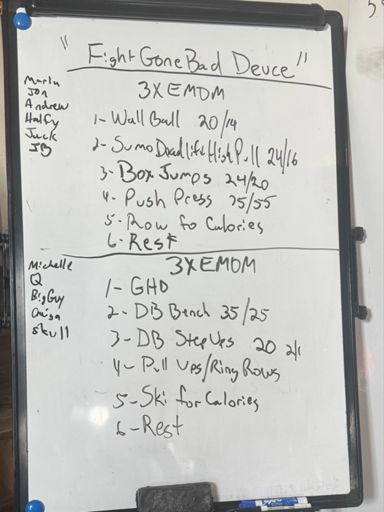 "Fight Gone Bad Deuce"
3X EMOM
Marla
Jon
Andrew
Halfy
Jack
JB
1- Wall Ball 20/14
2- Sumo Deadlift High Pull 24/16
3- Box Jumps 24/20
4- Push Press 75/55
5- Row for Calories
6- Rest
3X EMOM
Michelle
Q
Big Guy
Skull
1- GHD
2- DB Bench 35/25
3- DB Step Ups 20
4- Pull Ups/Ring Rows
5- Ski for Calories
6- Rest